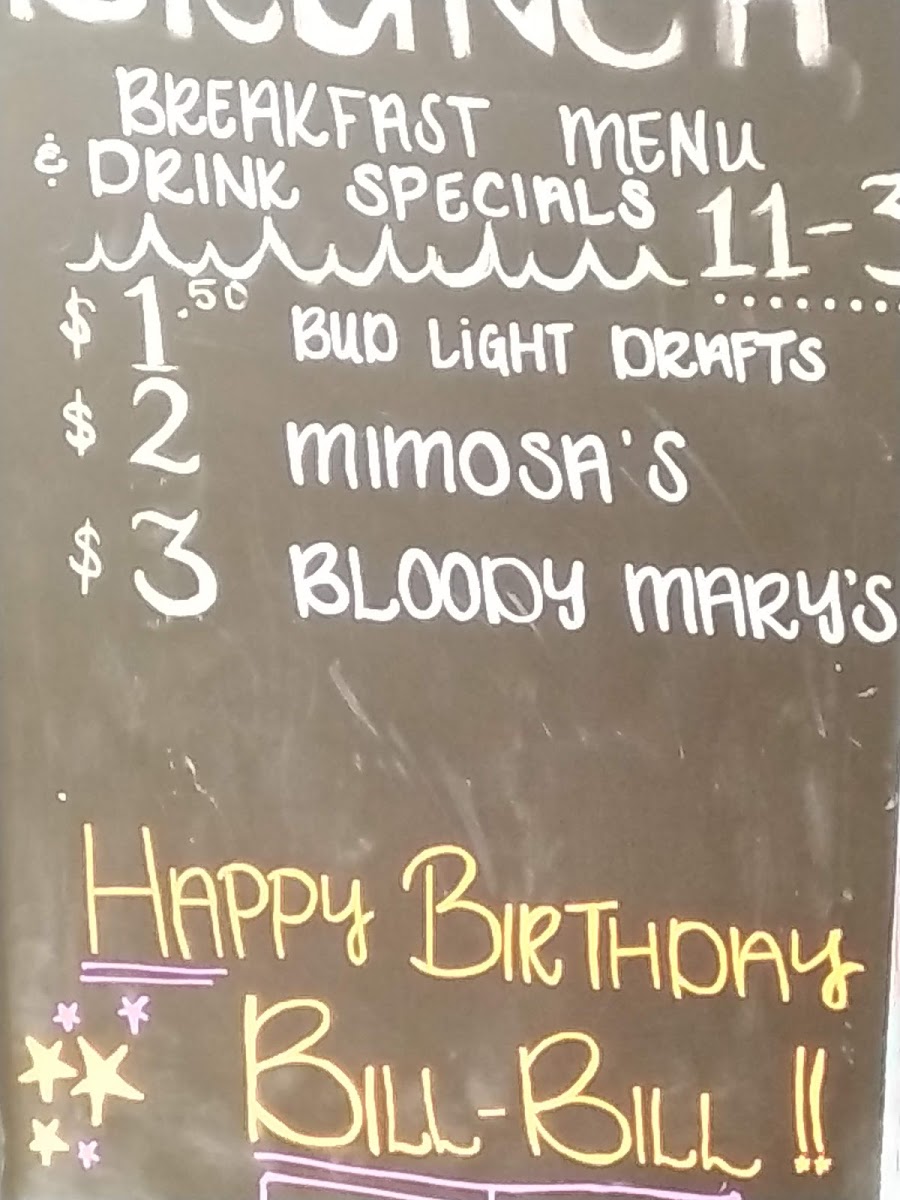 BRUNCH
BREAKFAST MENU
& DRINK SPECIALS 11-3
$1.50 BUD LiGHT DRAFTS
$2 MIMOSA'S
$3 BLOODY MARY'S
HAPPY BIRTHDAY
BILL-BILL!!